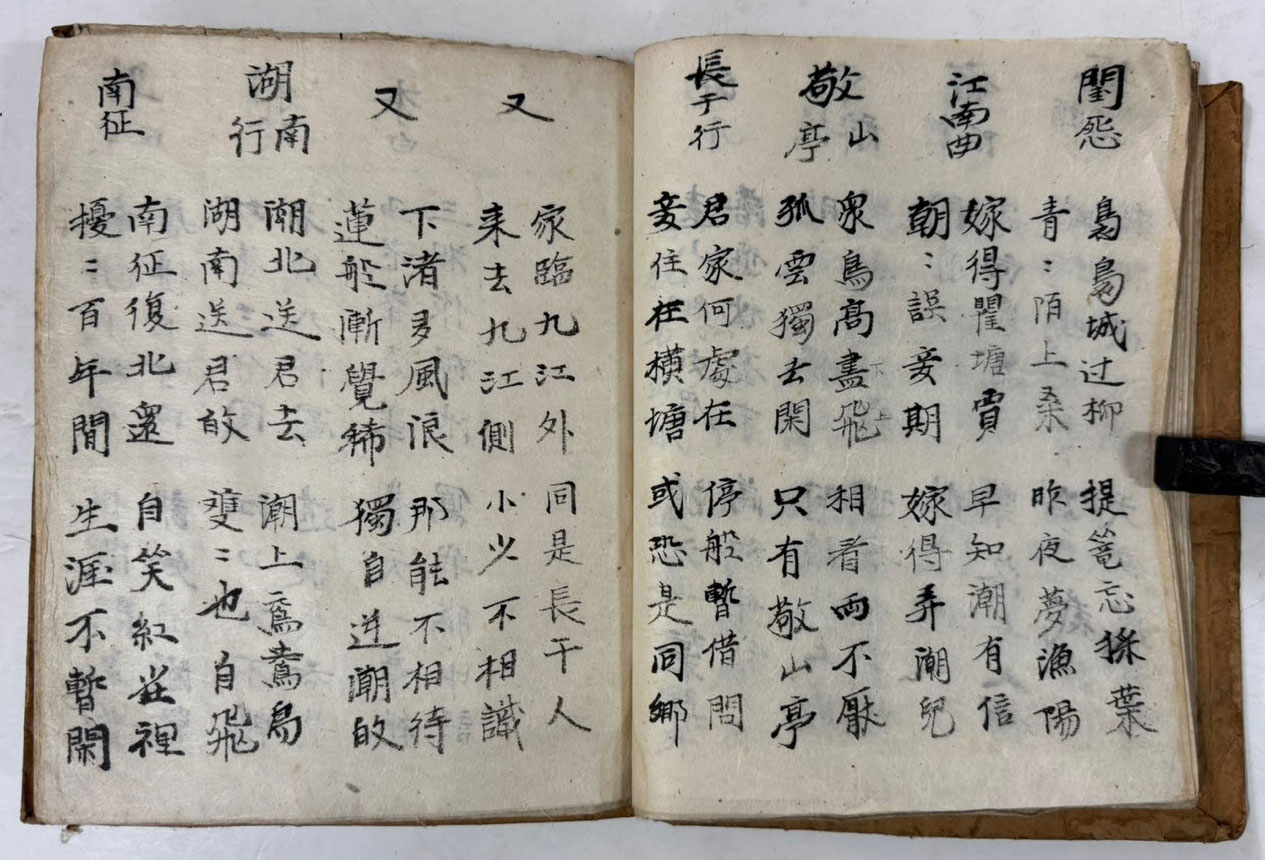 閨怨
裊裊城过柳 提篭忘採葉
青〻陌上桒 昨夜夢漁陽
江南曲
嫁得瞿塘賈 早知潮有信
朝〻誤妾期 嫁得弄潮兒
敬山亭
衆鳥高盡飛 相看両不厭
孤雲獨去閑 只有敬山亭
長于行
君家何處在 停船暫借問
妾住在横塘 或恐是同鄉
又
家臨九江外 同是長干人
来去九江側 小少不相識
又
下渚多風浪 那能不相待
蓮船漸覺稀 獨自逆潮故
湖南行
湖北送君去 潮上鴛鴦鳥
湖南送君故 雙〻也自飛
南征
南征復北還 自笑紅塵裡
擾〻百年間 生涯不暫閑